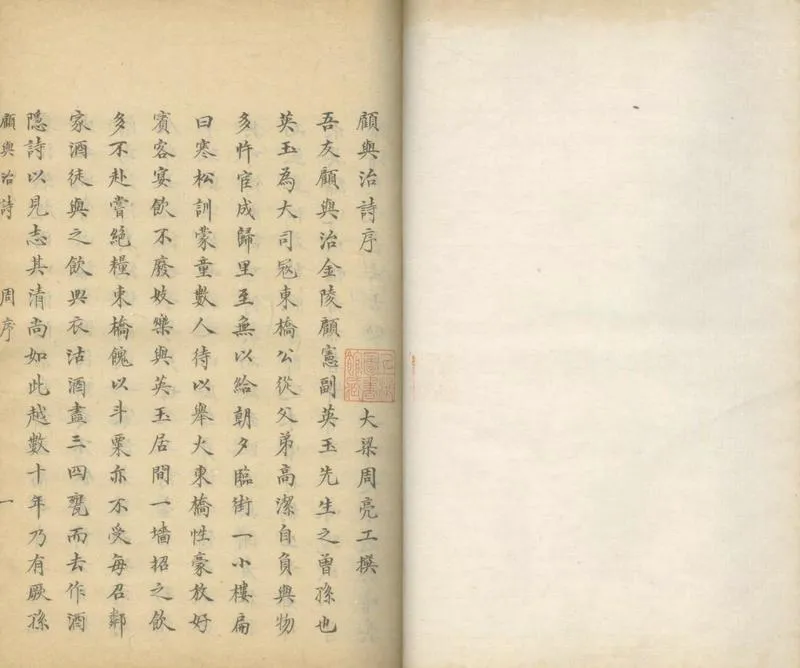 顧與治詩序
大梁周亮工撰
吾友顧與治金陵顧憲副英玉先生之曾孫也
英玉為大司寇東橋公從父弟高潔自負與物
多忤宦成歸里至無以給朝夕臨街一小樓扁
曰寒松訓蒙童數人待以舉火東橋性豪放好
賓客宴飲不廢妓樂與英玉居間一墻招之飲
多不赴嘗絕糧東橋餽以斗粟亦不受每召鄰
家酒徒與之飲典衣沽酒盡三四甕而去作酒
隱詩以見志其清尚如此越數十年乃有厥孫
顧與治詩 周序 一